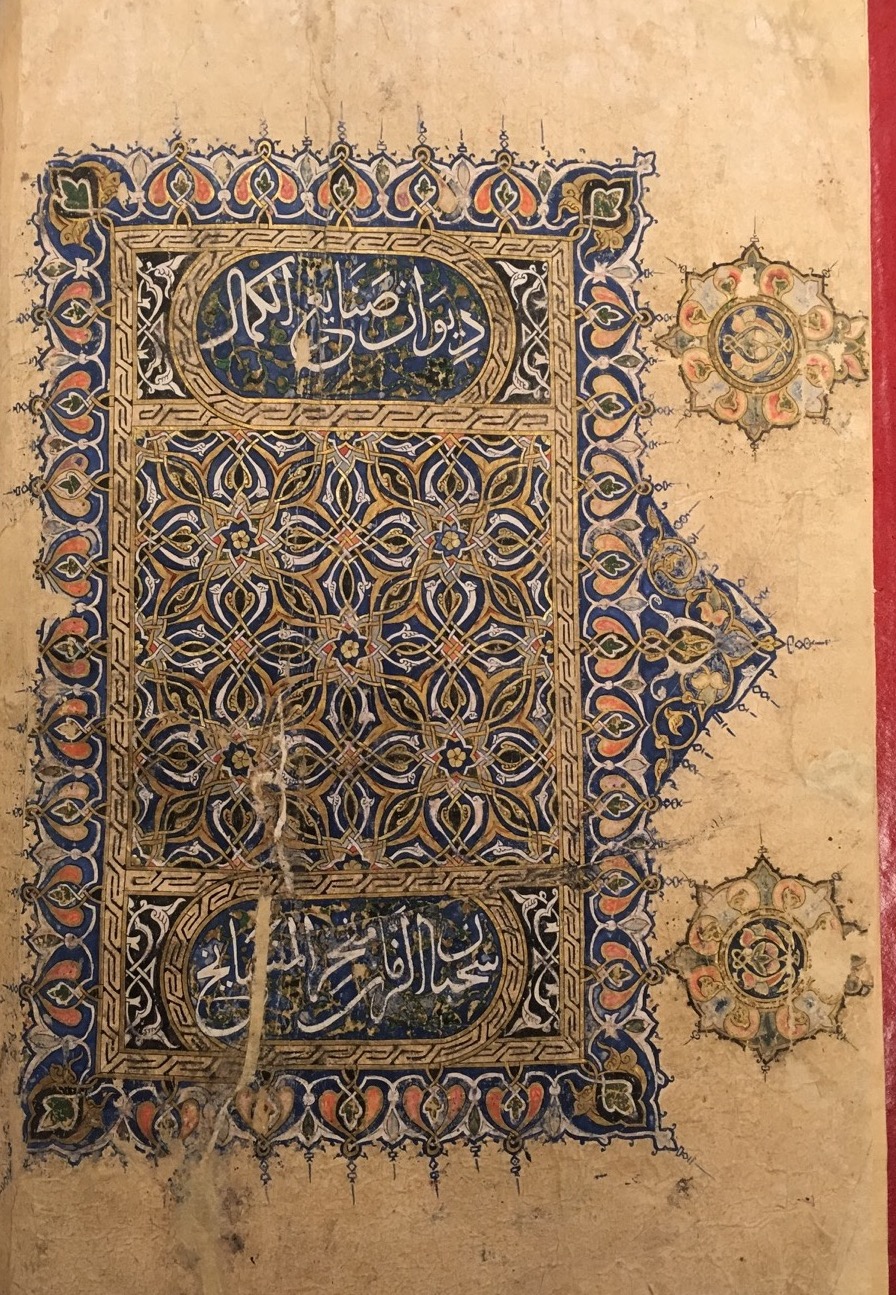 دِيوَان صَنَايع الكمال
سحبان الزمان مفخر المشايخ